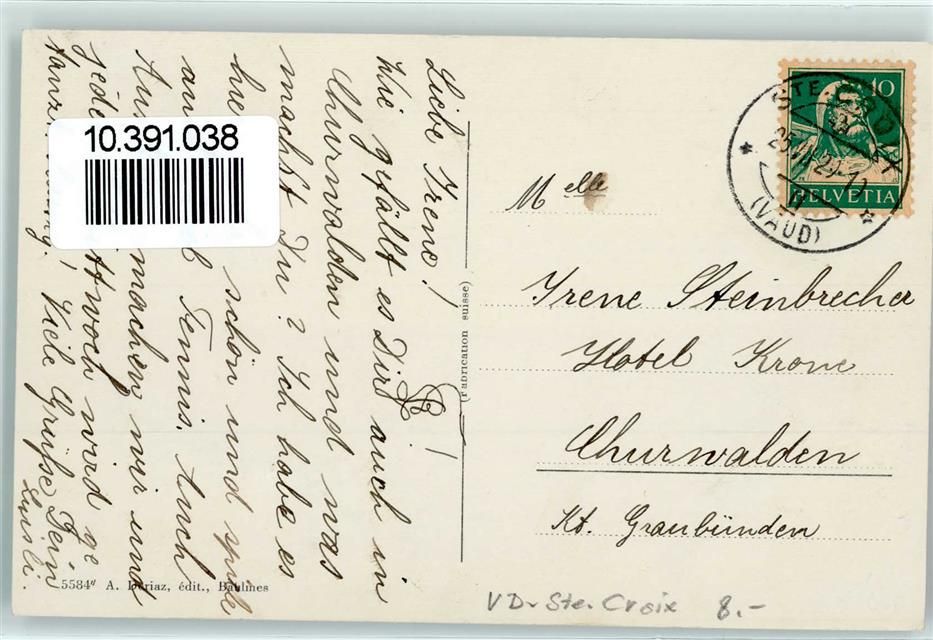 Liebe Irene!
Wie gefällt es Dir auch in
Churwalden und was
machst Du? Ich habe es
hie schön und spiele
Tennis. Auch
Aus machen wir und
jede ttwoch wird ge
tanzt
Viele Grüsse Dein
10.391.038
(Fabrication suisse)
5584 A. Dériaz, édit., Baulmes
10
HELVETIA
STE CROIX
(VAUD)
Melle
Irene Steinbrecher
Hotel Krone
Churwalden
Kt. Graubünden
VD - Ste. Croix 8.-